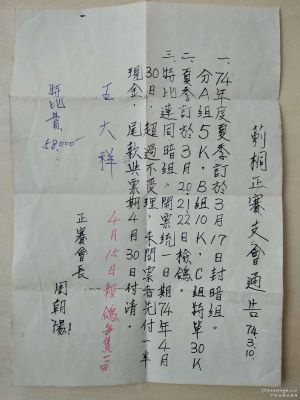 莿桐正賽支會通告 74.3.10.
一、74年度夏季訂於3月17日封暗組。
分A組5K,B組10K,C組特單30K
二、夏季訂於3月20.21.22日檢鴿。
三、特比連同暗組,開票統一日期74年4月
30日,超過不受理,未開票者先付一半
現金,尾款與票期4月30日付清。
4月15日報鴿每隻一百
王大祥
正賽會長 周朝陽
特比貴 58000